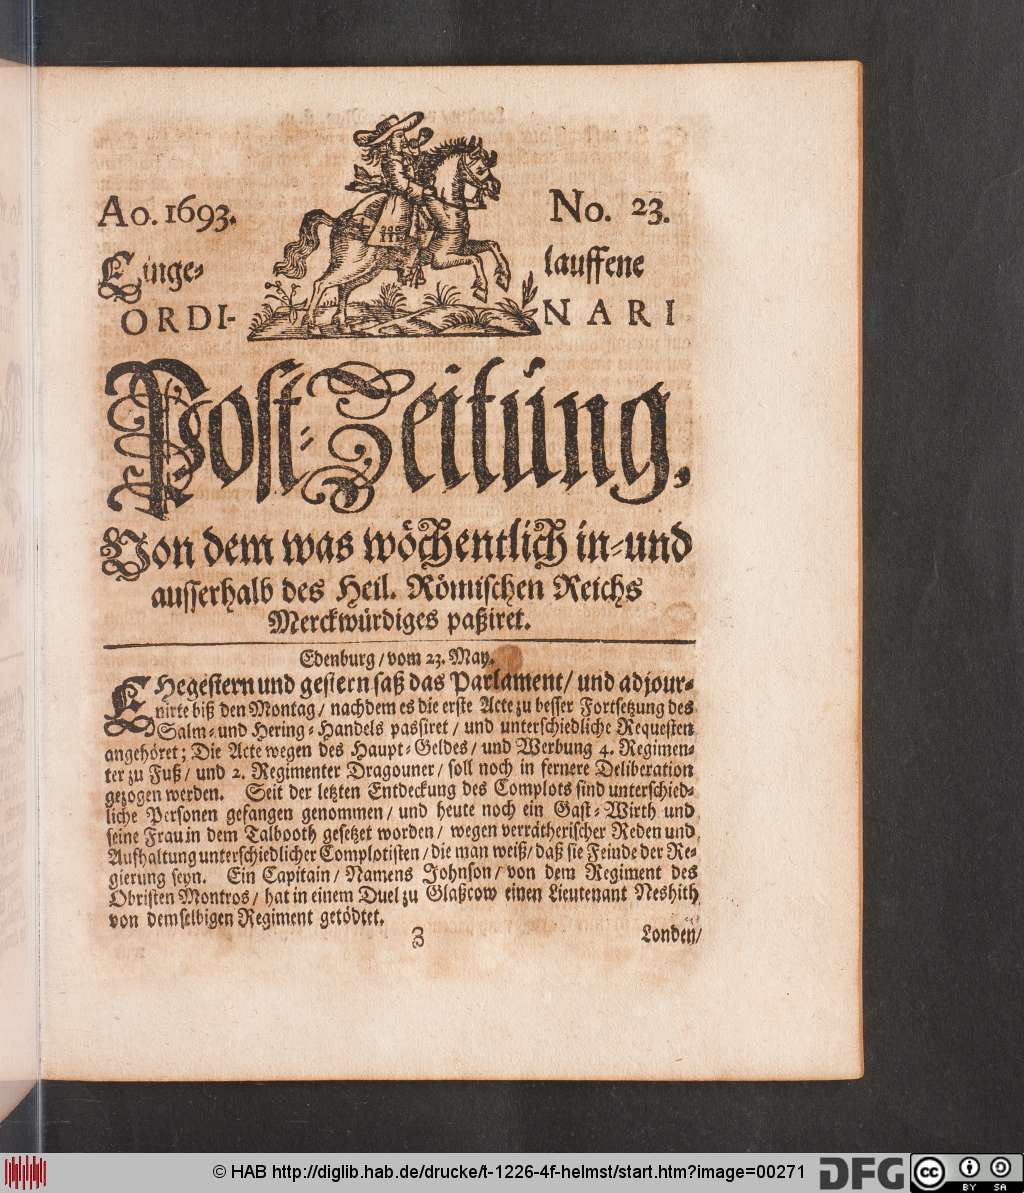 Ao. 1693. No. 23.
Einge- lauffene
ORDI- NARI
Post-Zeitung,
Von dem was wöchentlich in-und
ausserhalb des Heil. Römischen Reichs
Merckwürdiges paßiret.
Edenburg/vom 23. May.
EHegestern und gestern saß das Parlament/ und adjour-
nirte biß den Montag/ nachdem es die erste Acte zu besser Fortsetzung des
Salm-und Hering-Handels passiret/ und unterschiedliche Requesten
angehöret; Die Acte wegen des Haupt-Geldes/ und Werbung 4. Regimen-
ter zu Fuß/ und 2. Regimenter Dragouner/ soll noch in fernere Deliberation
gezogen werden. Seit der letzten Entdeckung des Complots sind unterschied-
liche Personen gefangen genommen/ und heute noch ein Gast-Wirth und
seine Frau in dem Talbooth gesetzet worden/ wegen verrätherischer Reden und
Aufhaltung unterschiedlicher Complotisten/ die man weiß/ daß sie Feinde der Re-
gierung seyn. Ein Capitain/ Namens Johnson/ von dem Regiment des
Obristen Montros/ hat in einem Duel zu Glaßcow einen Lieutenant Neshith
von demselbigen Regiment getödtet.
3 Londen/
© HAB http://diglib.hab.de/drucke/t-1226-4f-helmst/start.htm?image=00271
DFG
cc BY SA